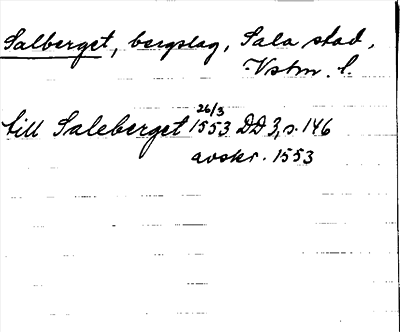 Salberget, bergslag, Sala stad,
Vstm. l.
till Saleberget 26/3 1553 DD 3, s. 146
avskr. 1553